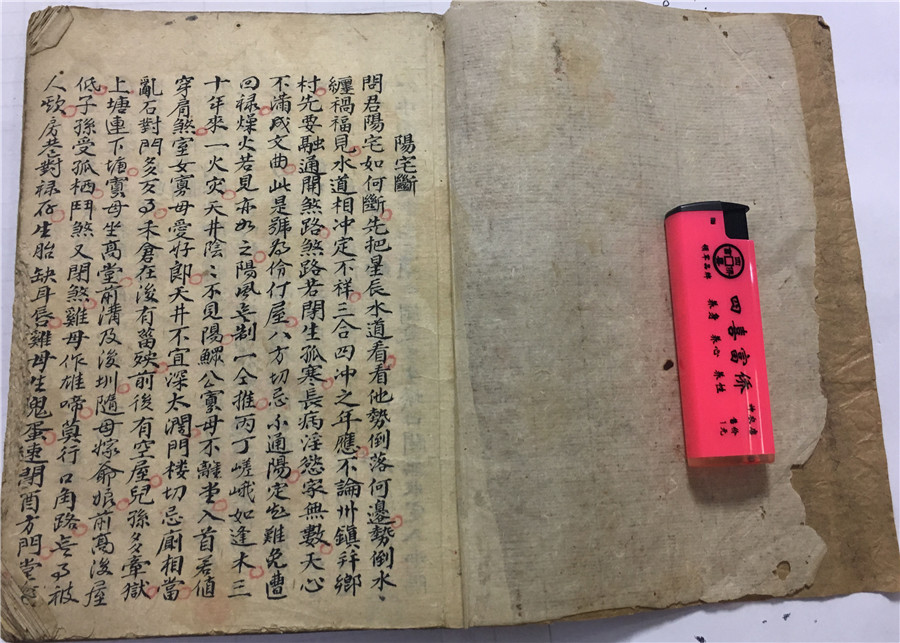 陽宅斷
問君陽宅如何斷先把星辰水道看看他勢倒落何邊勢倒水
纏禍福見水道相冲定不祥三合四冲之年應不論州鎮并鄉
村先要融通開煞路煞路若閉生孤寒長病淫慾家無數天心
不滿成文曲此是號為伶仃屋八方切忌不通陽定知難免遭
回禄燥火若見亦如之陽風無制一仝推丙丁嵯峨如逢木三
十年來一火灾天井陰〻不見陽鰥公寡母不離堂入首若值
穿肩煞室女寡母愛好郎天井不宜深太濶門楼切忌廁相當
亂石對門多友事禾倉在後有畓殃前後有空屋兒孫多牽獄
上塘連下塘寡母坐高堂前溝及後圳隨母嫁爺娘前高後屋
低子孫受孤栖鬥煞又閉煞雞母作雄啼莫行口角路無事被
人欺房巷對禄存生胎缺耳唇雞母生鬼蛋速閉酉方門堂
四喜富僑
養身 養心 養性
售價
1元